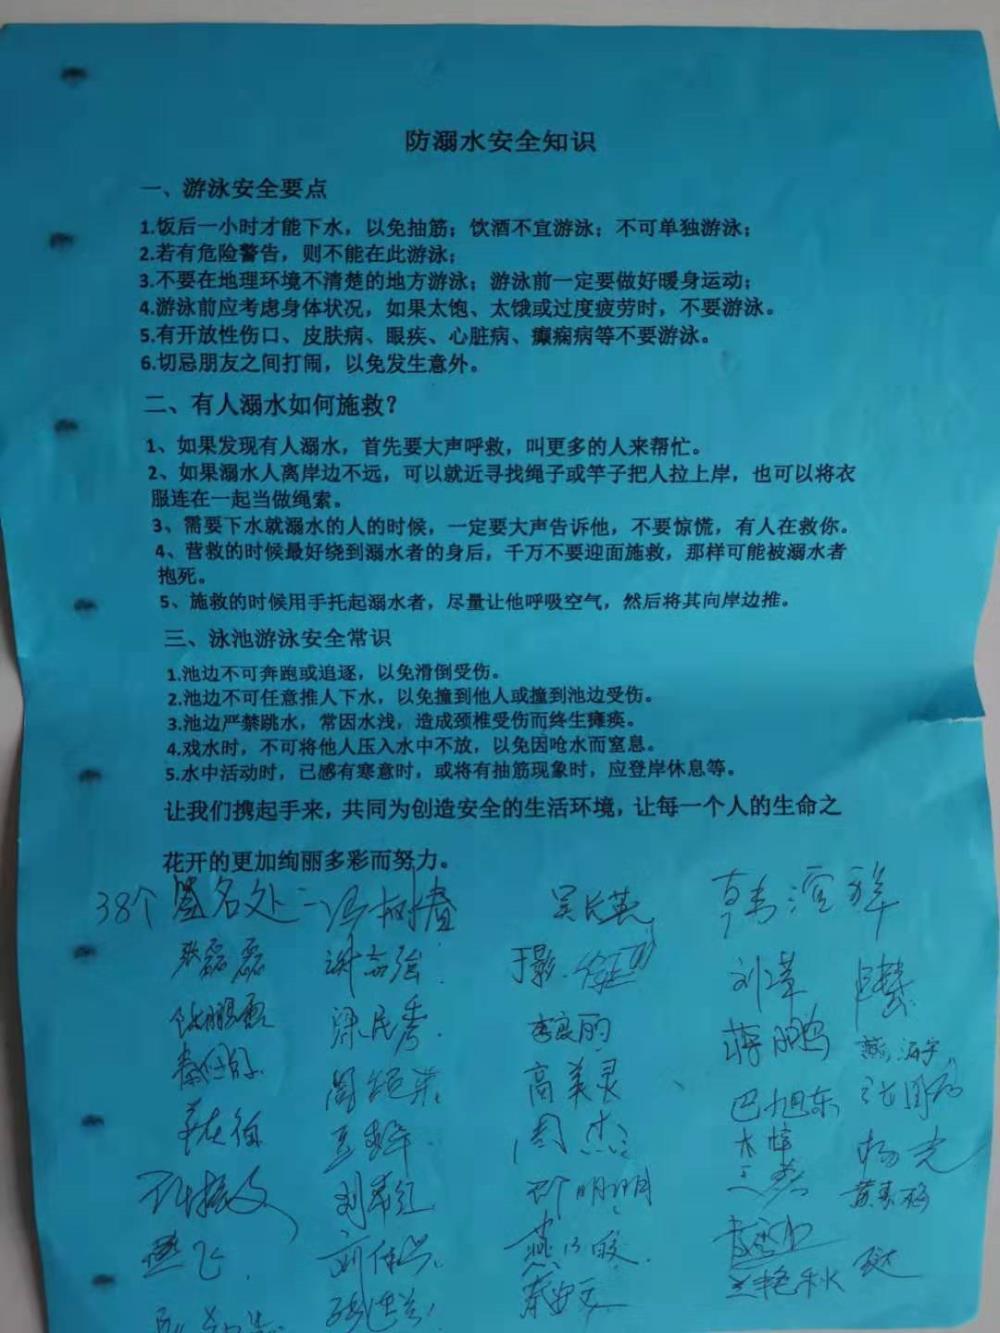 防溺水安全知识
一、游泳安全要点
1.饭后一小时才能下水，以免抽筋；饮酒不宜游泳；不可单独游泳；
2.若有危险警告，则不能在此游泳；
3.不要在地理环境不清楚的地方游泳；游泳前一定要做好暖身运动；
4.游泳前应考虑身体状况，如果太饱、太饿或过度疲劳时，不要游泳。
5.有开放性伤口、皮肤病、眼疾、心脏病、癫痫病等不要游泳。
6.切忌朋友之间打闹，以免发生意外。
二、有人溺水如何施救？
1、如果发现有人溺水，首先要大声呼救，叫更多的人来帮忙。
2、如果溺水人离岸边不远，可以就近寻找绳子或竿子把人拉上岸，也可以将衣
服连在一起当做绳索。
3、需要下水就溺水的人的时候，一定要大声告诉他，不要惊慌，有人在救你。
4、营救的时候最好绕到溺水者的身后，千万不要迎面施救，那样可能被溺水者
抱死。
5、施救的时候用手托起溺水者，尽量让他呼吸空气，然后将其向岸边推。
三、泳池游泳安全常识
1.池边不可奔跑或追逐，以免滑倒受伤。
2.池边不可任意推人下水，以免撞到他人或撞到池边受伤。
3.池边严禁跳水，常因水浅，造成颈椎受伤而终生瘫痪。
4.戏水时，不可将他人压入水中不放，以免因呛水而窒息。
5.水中活动时，已感有寒意时，或将有抽筋现象时，应登岸休息等。
让我们携起手来，共同为创造安全的生活环境，让每一个人的生命之
花开的更加绚丽多彩而努力。
38个 签名处：冯树春 吴长英
张磊磊 于影
梁民秀 李良丽 蒋鹏
高美灵
周杰 巴旭东 杨光
刘希红 邓明明
燕飞
秦安文 兰艳秋